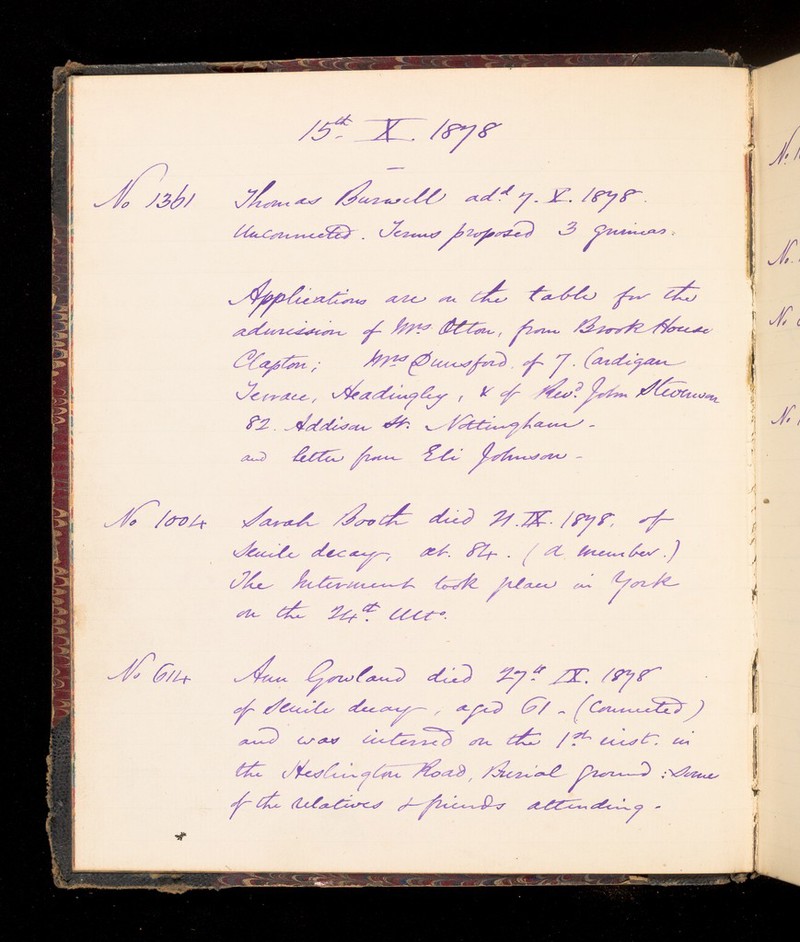 15th X. 1878
No 1361 Thomas Burwell add 7. X. 1878.
Unconnected. Terms proposed 3 guineas.
Applications are on the table for the
admission of Mrs Otton, from Brook House
Clapton; Mrs Dunsford, of 7. Cardigan
Terrace, Headingley, & of Revd. John Stevenson
82. Addison St. Nottingham -
and letter from Eli Johnson -
No 1004 Sarah Booth died 21. IX. 1878, of
Senile decay, æt. 84. (a member.)
The Interment took place in York
on the 24th. Ulto.
No 614 Ann Gowland died 27th IX. 1878
of Senile decay, aged 61 - (Connected)
and was interred on the 1st inst. in
the Heslington Road, Burial ground: some
of the relatives & friends attending.
No
No.
No
No